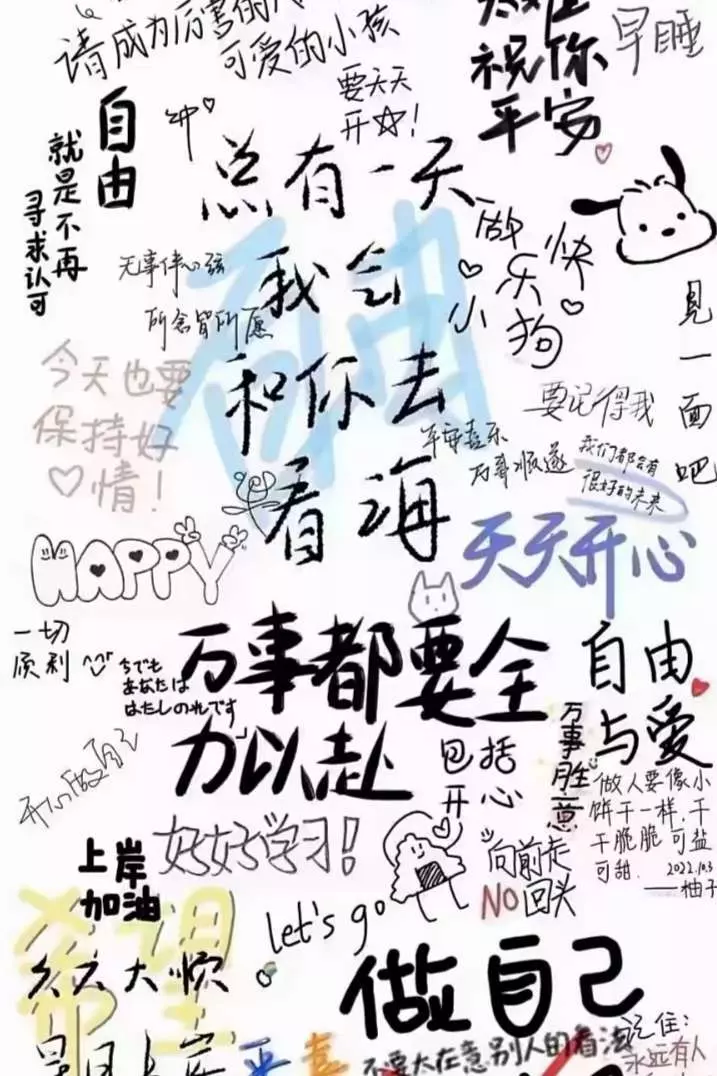 请成为厉害的
可爱的小孩
要天天
开☆!
祝你
平安
早睡
自由
就是不再
寻求认可
总有一天
我会
和你去
看海
自由
做
快
乐
小
狗
见一面吧
无事伴心弦
所念皆所愿
今天也要
保持好
♡情!
要记得我
平安喜乐
万事顺遂
我们都会有
很好的未来
天天开心
HAPPY
一切
顺利
ちでも
あなたは
はたしのれです
万事都要全
力以赴
包括
开心
自由
与爱
万事胜意
做人要像小
饼干一样,干
干脆脆可盐
可甜.
2022.10.3
——柚子
开心做自己
好好学习!
上岸
加油
向前走
NO回头
let's go
希望
天天大顺
做自己
不要太在意别人的看法
记住:
永远有人